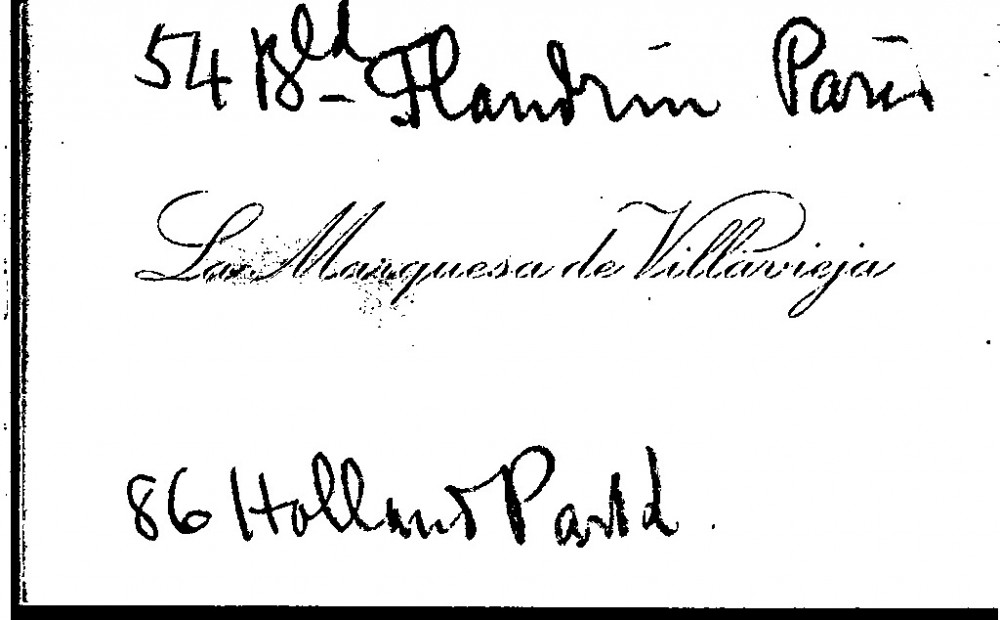 54 Bld- Flandrin Paris
La Marquesa de Villavieja
86 Holland Park